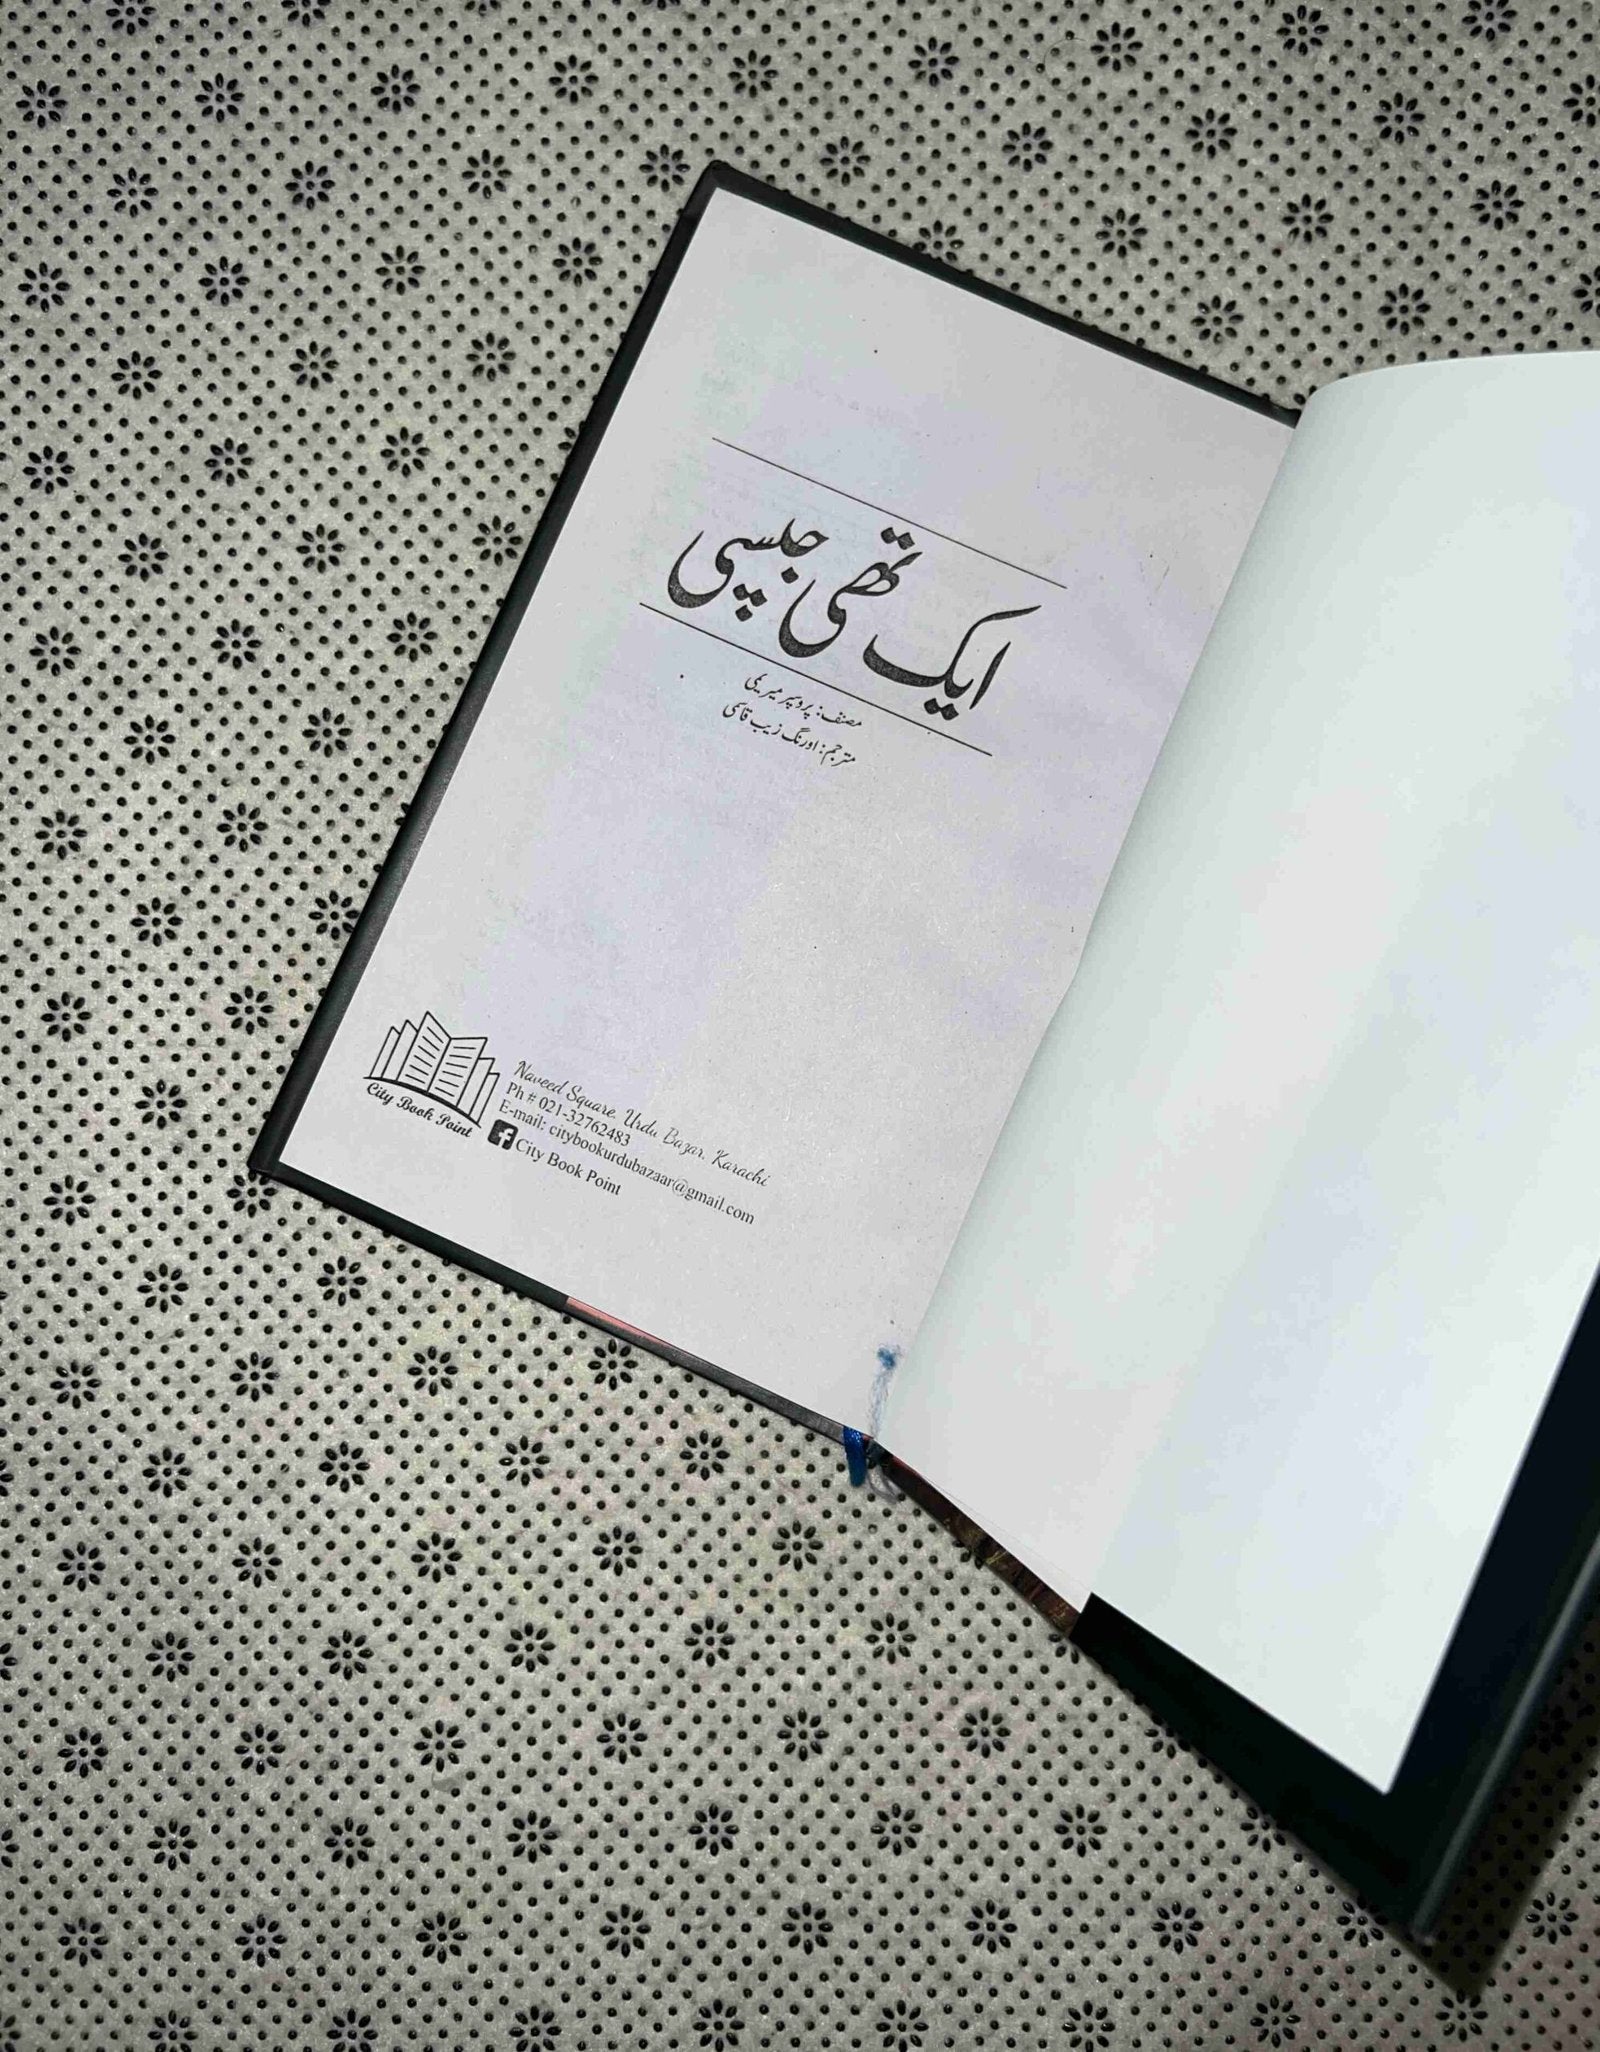 ایک تھی جلسپی
مصنف: پروسپر میریمی
مترجم: اورنگ زیب قاسمی
City Book Point
Naveed Square, Urdu Bazar, Karachi
Ph # 021-32762483
E-mail: citybookurdubazaar@gmail.com
City Book Point